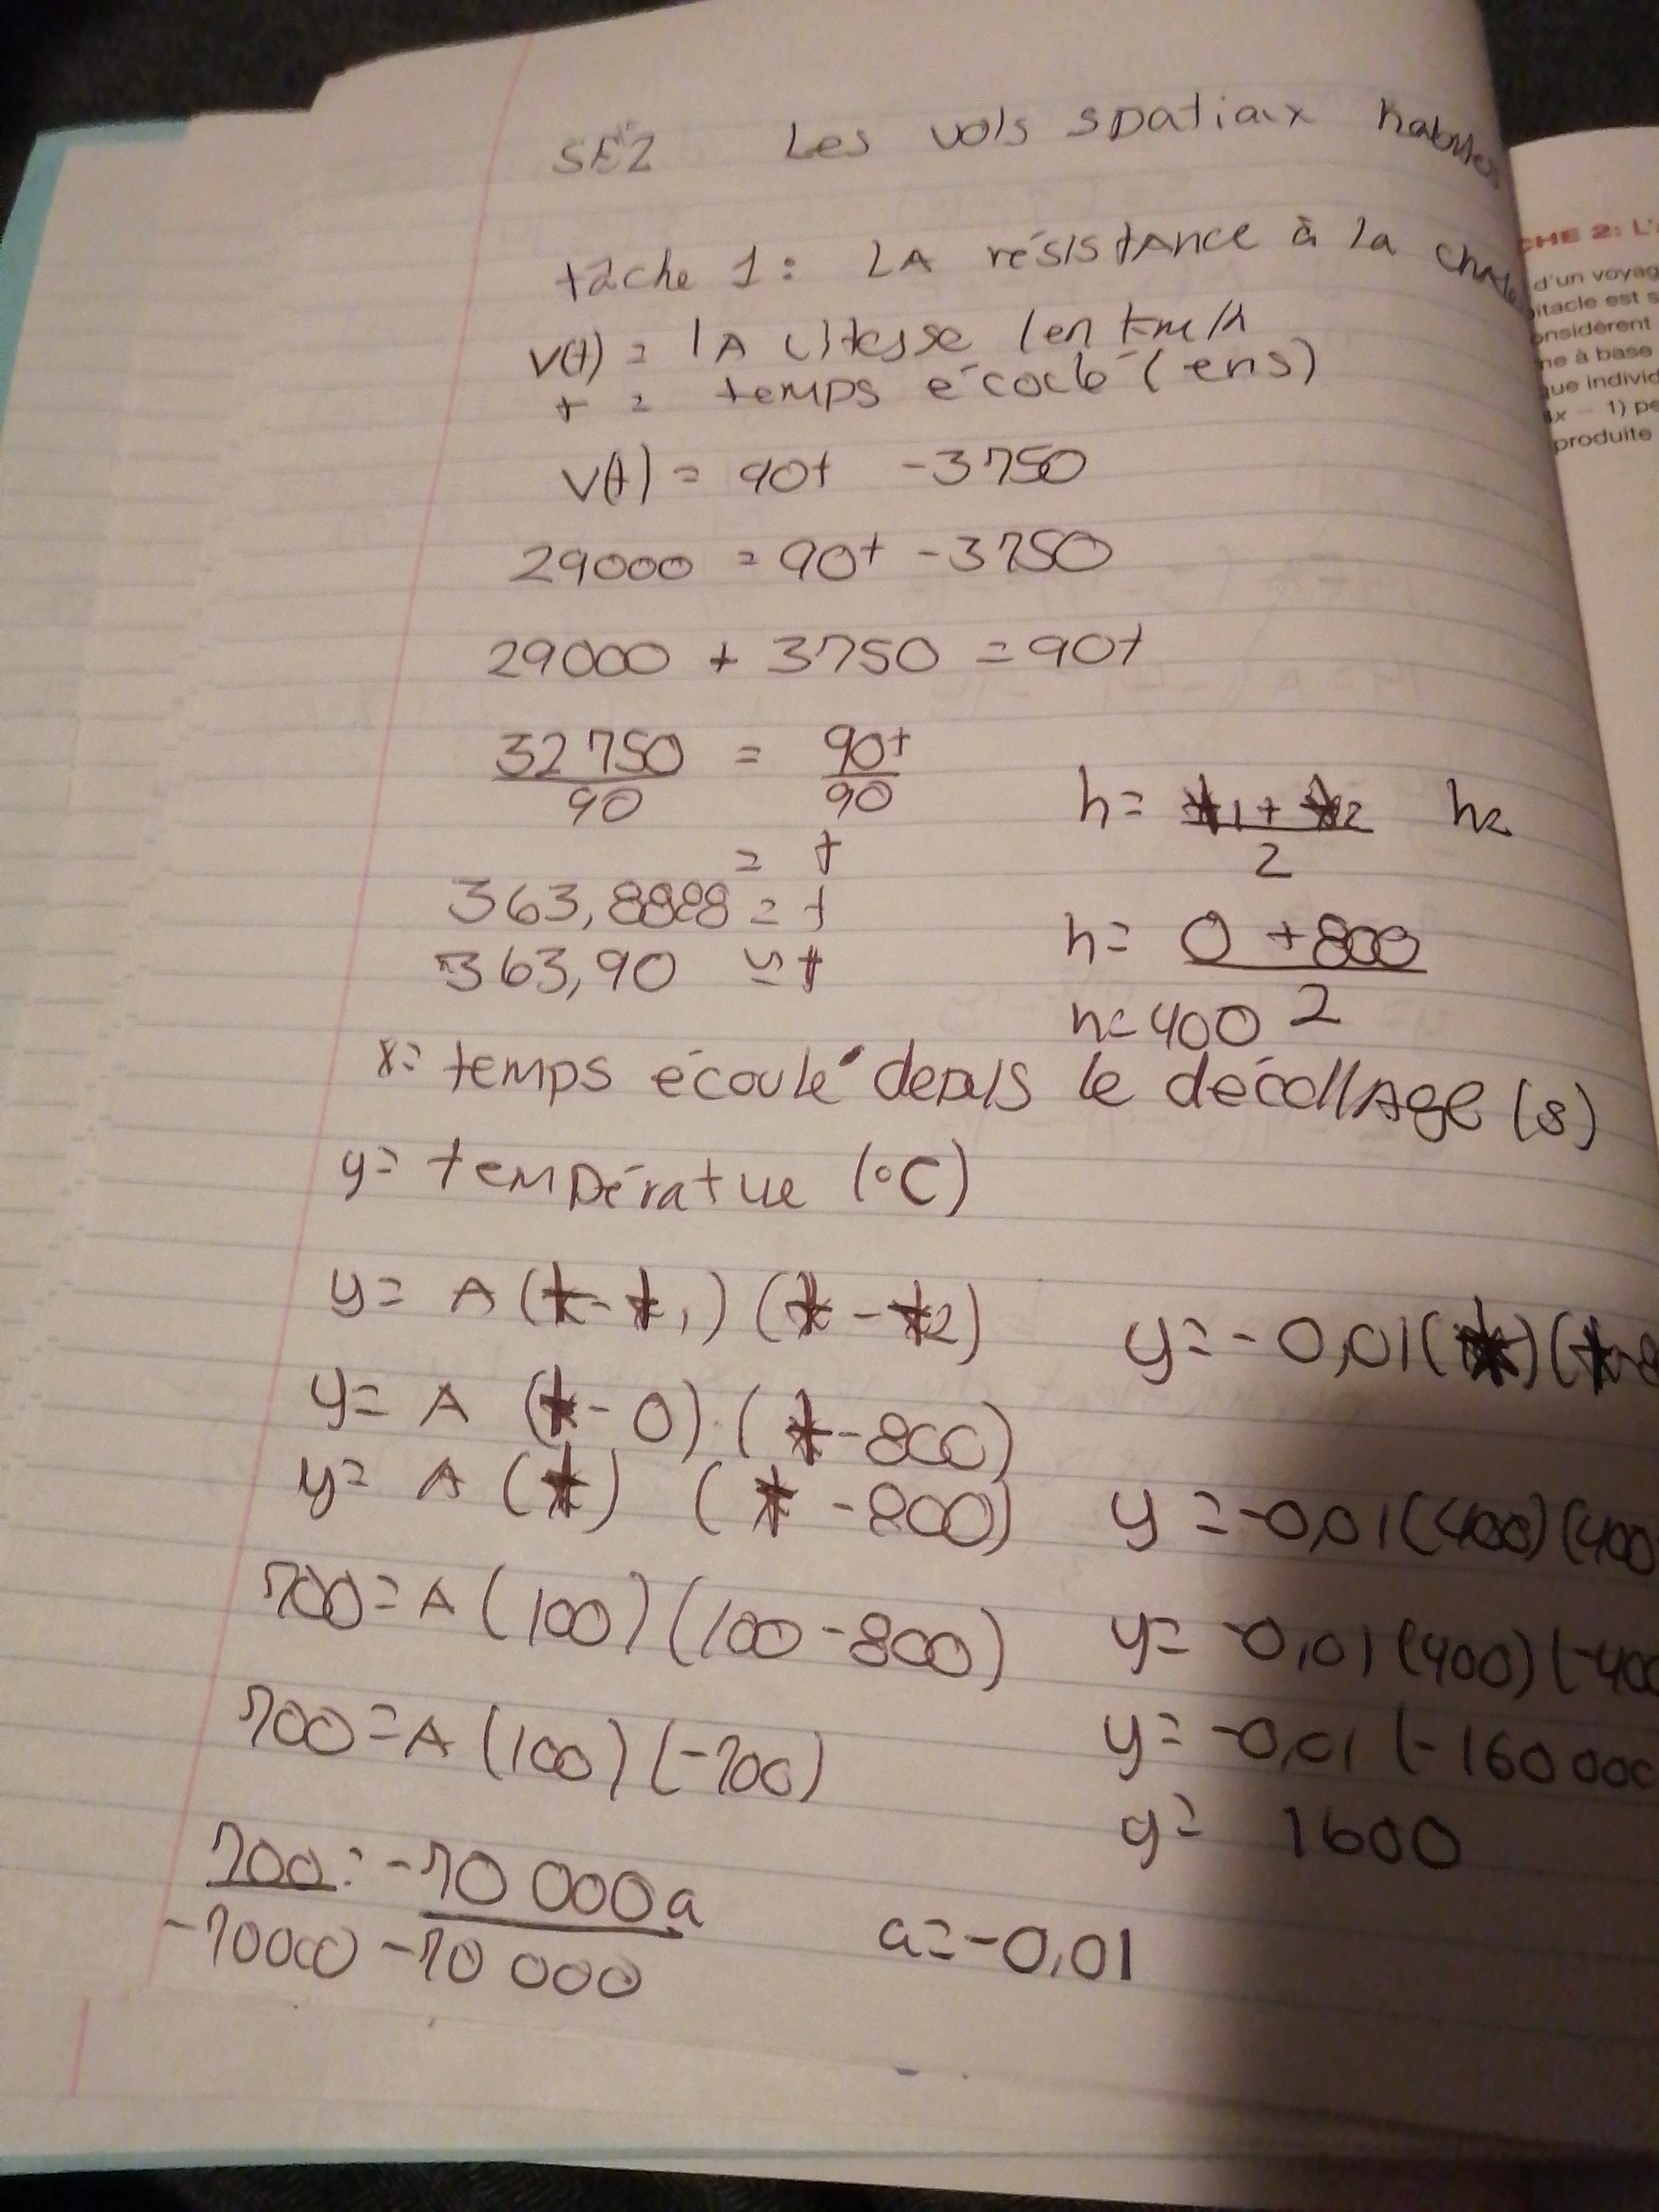 SÉ2 Les vols spatiaux habités
tâche 1: LA résistance à la
v(t) = lA vitesse (en km/h
t = temps écoclé (en s)
v(t) = 90t - 3750
29000 = 90t - 3750
29000 + 3750 = 90t
32 750 = 90t
90 90
= t
363,8888 = t
363,90 ≈ t
h = t1 + t2 h=
2
h = 0 + 800
2
h= 400
x= temps écoulé depuis le décollAge (s)
y= températue (°C)
y= A(t-t1) (t-t2)
y= A (t-0).(t-800)
y= A (t) (t-800)
700=A(100)(100-800)
700=A(100)(-700)
700=-70 000a
-70000 -70 000
a=-0,01
y=-0,01(t)(t-8
y=-0,01(400)(400
y= -0,01(400)(-400
y= -0,01(-160 000
y= 1600
CHE 2: L'
d'un voyag
itacle est s
onsidèrent
ne à base
que individ
x - 1) pe
produite